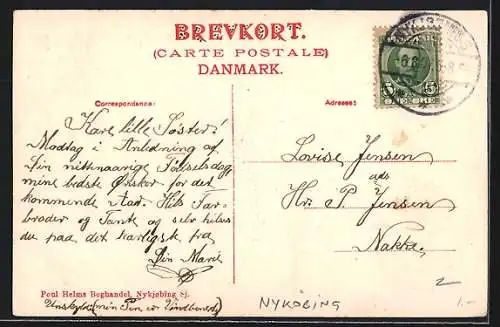 BREVKORT.
(CARTE POSTALE)
DANMARK.
Correspondance:
Adresse:
Kære lille Søster!
Modtag i Anledning af
Din nittenaarige Fødselsdag
mine bedste Ønsker for det
kommende Aar. Hils Far-
broder og Tante og selv hilses
du paa det kærligste fra
Din Marie
Lovise Jensen
Hr. P Jensen
Nakke.
Poul Helms Boghandel, Nykjøbing Sj.
Undskyld (min Pen er
NYKÖBING
1.-